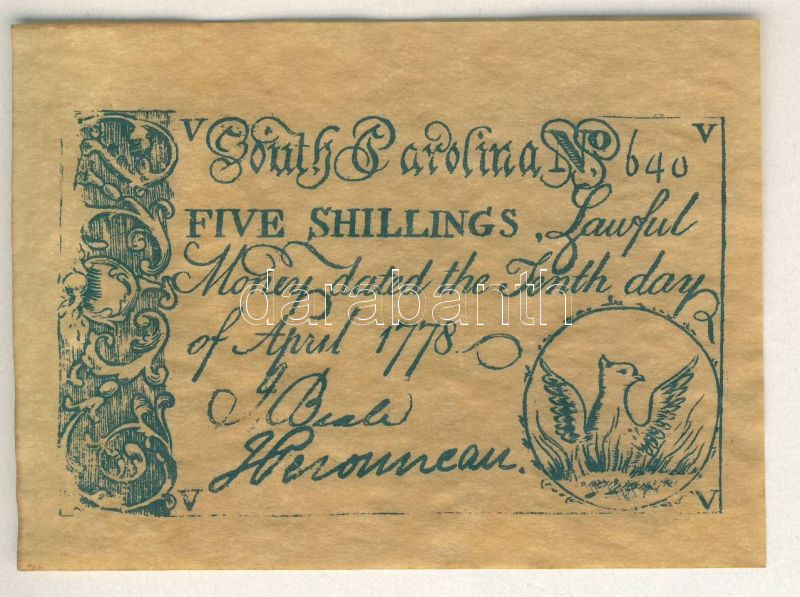 V V
South Carolina No. 640
FIVE SHILLINGS, Lawful
Money, dated the Tenth day
of April 1778
J Beale
H Peronneau.
V V
darabanth